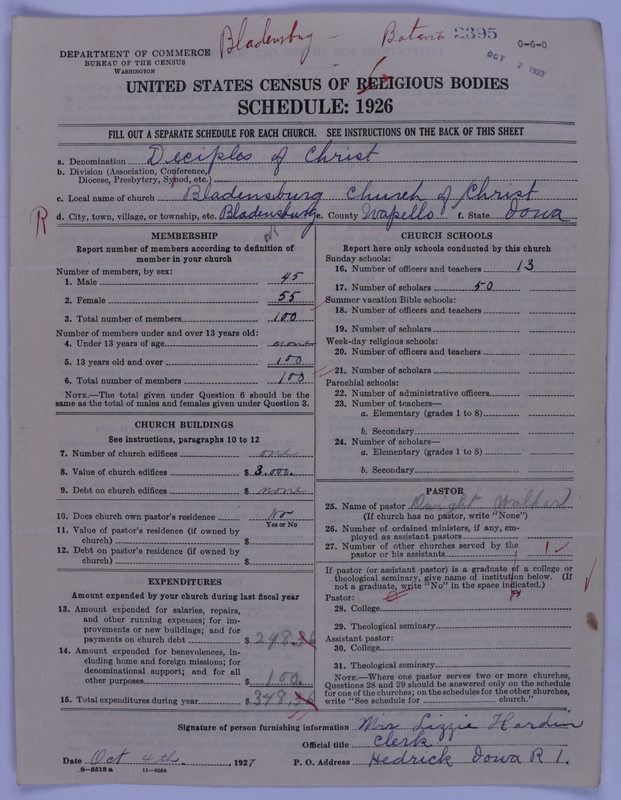 Bladensburg - Batavia 2395
0-6-0
OCT 7 1927
DEPARTMENT OF COMMERCE
BUREAU OF THE CENSUS
WASHINGTON
UNITED STATES CENSUS OF RELIGIOUS BODIES
SCHEDULE: 1926
FILL OUT A SEPARATE SCHEDULE FOR EACH CHURCH. SEE INSTRUCTIONS ON THE BACK OF THIS SHEET
a. Denomination Deciples of Christ
b. Division (Association, Conference, Diocese, Presbytery, Synod, etc.)
c. Local name of church Bladensburg Church of Christ
R d. City, town, village, or township, etc. Bladensburg e. County Wapello f. State Iowa
MEMBERSHIP
Report number of members according to definition of
member in your church
Number of members, by sex:
1. Male 45
2. Female 55
3. Total number of members 100
Number of members under and over 13 years old:
4. Under 13 years of age none
5. 13 years old and over 100
6. Total number of members 100
NOTE.—The total given under Question 6 should be the
same as the total of males and females given under Question 3.
CHURCH BUILDINGS
See instructions, paragraphs 10 to 12
7. Number of church edifices one
8. Value of church edifices $ 3,000.
9. Debt on church edifices $ none
10. Does church own pastor's residence No
Yes or No
11. Value of pastor's residence (if owned by
church) $
12. Debt on pastor's residence (if owned by
church) $
EXPENDITURES
Amount expended by your church during last fiscal year
13. Amount expended for salaries, repairs,
and other running expenses; for im-
provements or new buildings; and for
payments on church debt $ 248.36
14. Amount expended for benevolences, in-
cluding home and foreign missions; for
denominational support; and for all
other purposes $ 100.
15. Total expenditures during year $ 348.36
CHURCH SCHOOLS
Report here only schools conducted by this church
Sunday schools:
16. Number of officers and teachers 13
17. Number of scholars 50
Summer vacation Bible schools:
18. Number of officers and teachers
19. Number of scholars
Week-day religious schools:
20. Number of officers and teachers
21. Number of scholars
Parochial schools:
22. Number of administrative officers
23. Number of teachers—
a. Elementary (grades 1 to 8)
b. Secondary
24. Number of scholars—
a. Elementary (grades 1 to 8)
b. Secondary
PASTOR
25. Name of pastor Dwight Walker
(If church has no pastor, write "None")
26. Number of ordained ministers, if any, em-
ployed as assistant pastors
27. Number of other churches served by the
pastor or his assistants 1
If pastor (or assistant pastor) is a graduate of a college or
theological seminary, give name of institution below. (If
not a graduate, write "No" in the space indicated.)
Pastor:
28. College
29. Theological seminary
Assistant pastor:
30. College
31. Theological seminary
NOTE.—Where one pastor serves two or more churches,
Questions 28 and 29 should be answered only on the schedule
for one of the churches; on the schedules for the other churches,
write "See schedule for church."
Signature of person furnishing information Mrs Lizzie Hardin
Official title Clerk
Date Oct 4th, 1927 P. O. Address Hedrick Iowa R 1.
8-5518a 11-9054